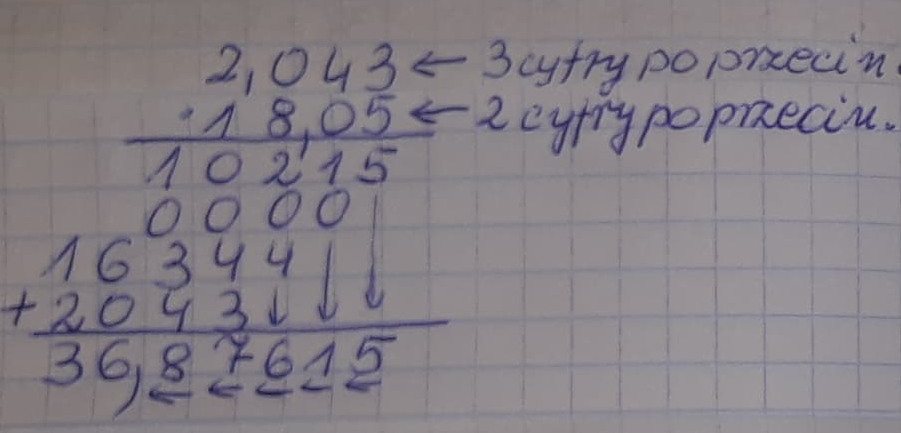 2,043 ← 3 cyfry po przecin.
·18,05 ← 2 cyfry po przecin.
10215
0000
16344
+2043
36,87615